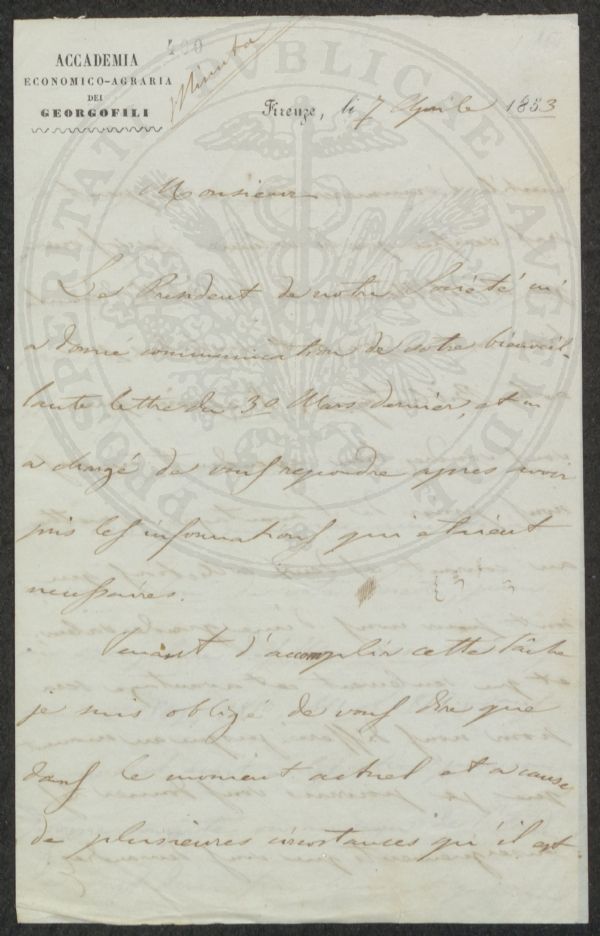 400
Minuta
ACCADEMIA
ECONOMICO-AGRARIA
DEI
GEORGOFILI
Firenze, li 7 Aprile 1853
Monsieur
Le Président de notre Société m'
a donné communication de votre bienveil-
lante lettre du 30 Mars dernier, et m
a chargé de vous repondre après avoir
pris les informations qui etaient
necessaires.
Venant d'accomplir cette tâche
je suis obligé de vous dire que
dans le moment actuel et a cause
de plusieures circostances qu'il est
PROSPERITATI PUBLICAE AUGENDAE